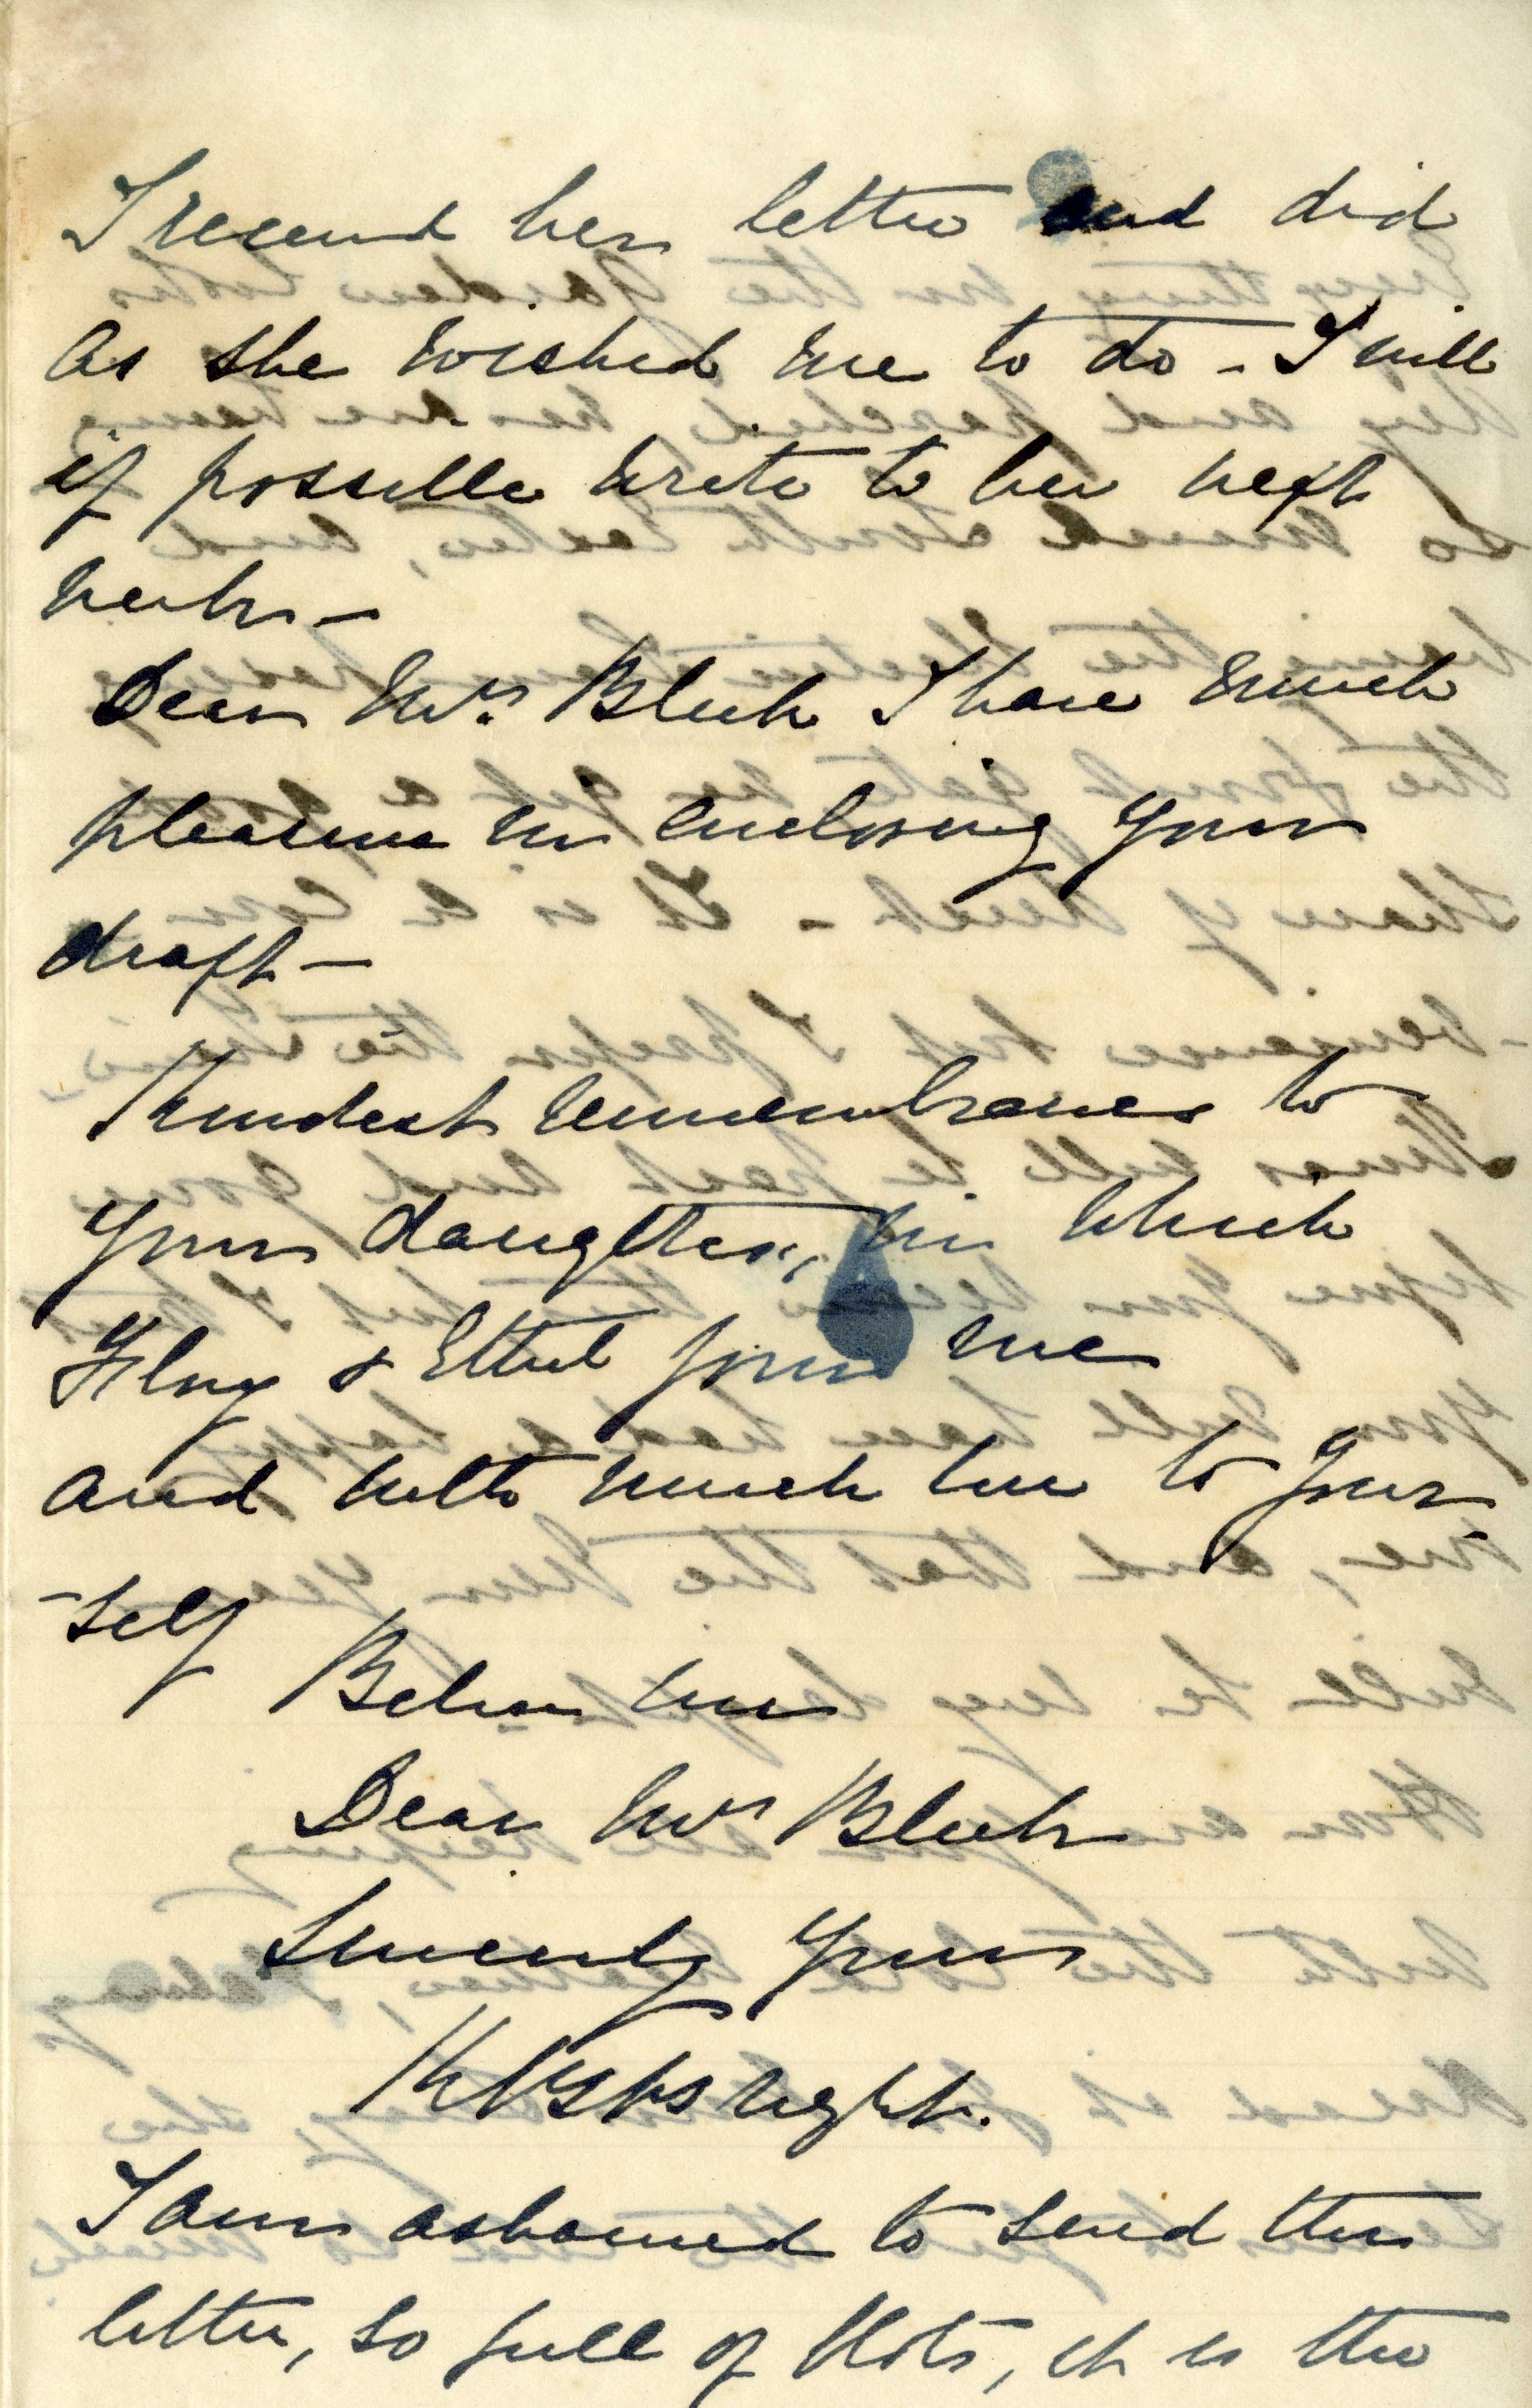 I received her letter and did
as she wished me to do - I will
if possible write to her next
week -
Dear Mrs. Bluck I have much
pleasure in enclosing your
draft -
Kindest remembrances to
your daughter, in which
& Ethel join me
and with much love to your
-self
Believe me
Dear Mrs Bluck
Sincerely yours
I am ashamed to send this
letter, so full of blots, it is the